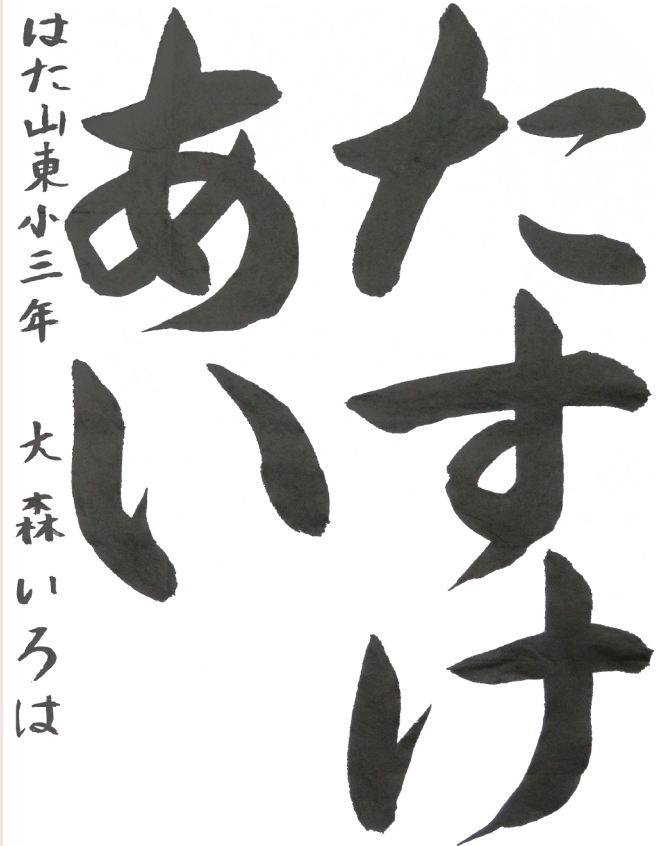 たすけ
あい
はた山東小三年 大森いろは